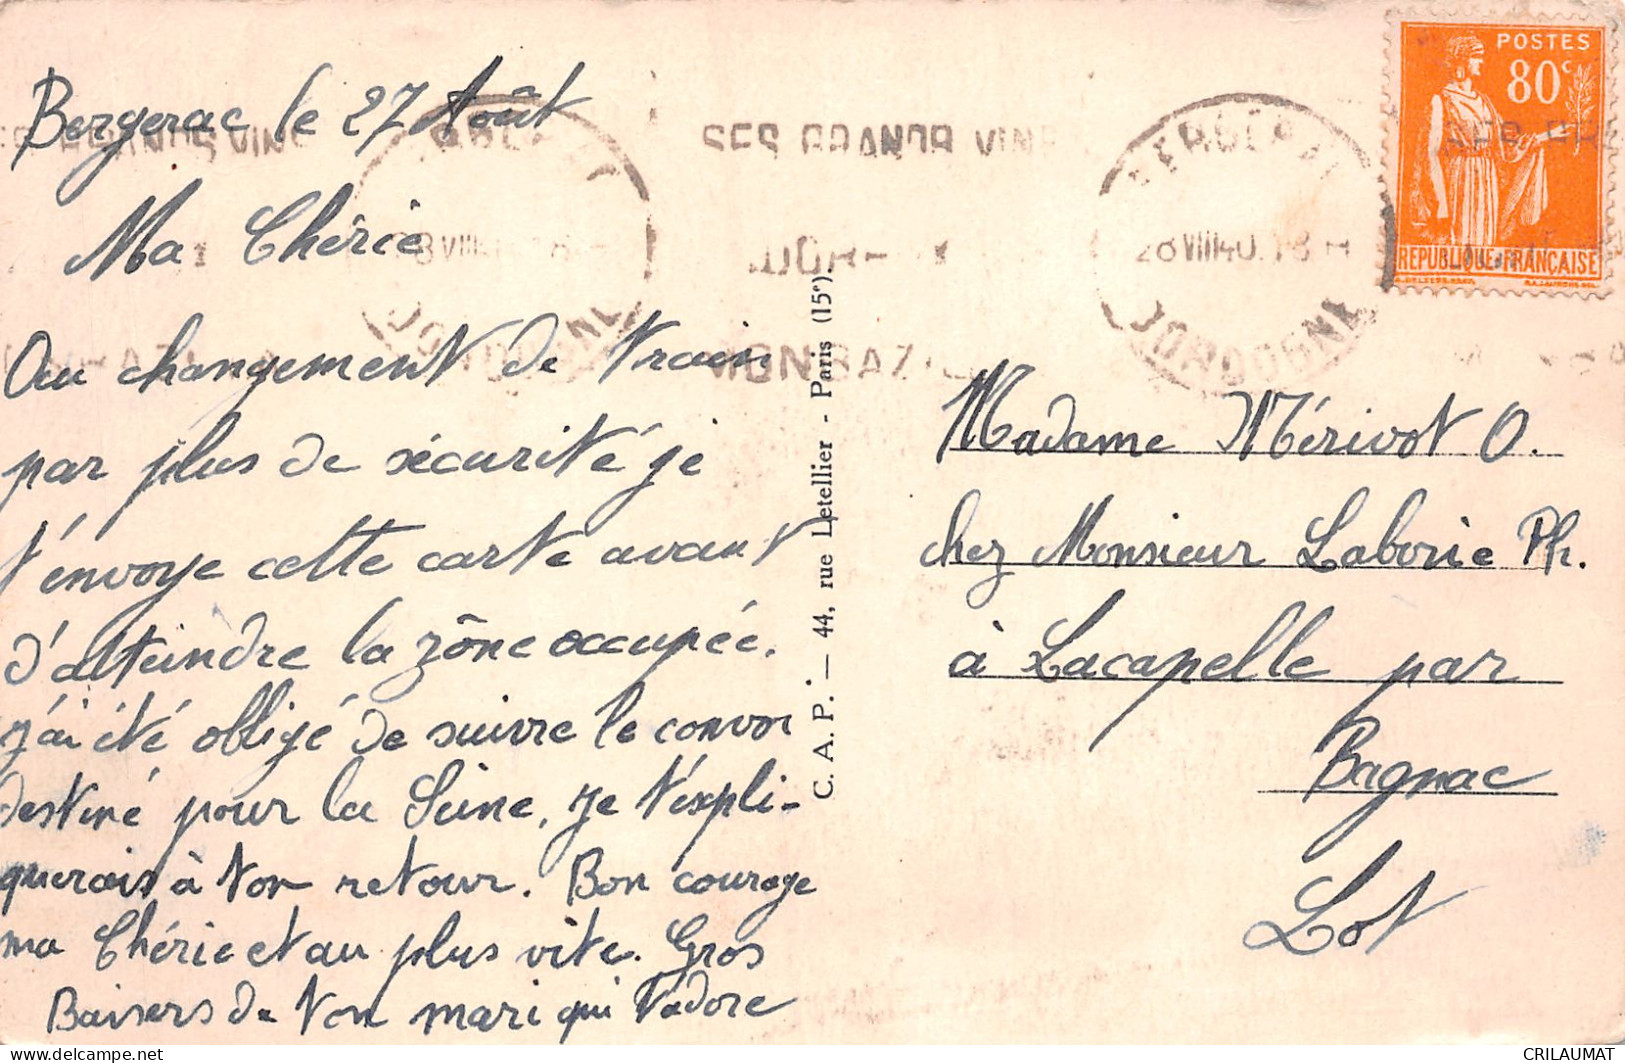 Bergerac le 27 Août
Ma Chérie
Au changement de train
par plus de sécurité je
t'envoye cette carte avant
d'atteindre la zône occupée.
j'ai été obligé de suivre le convoi
destiné pour la Seine, je t'expli-
querais à ton retour. Bon courage
ma Chérie et au plus vite. Gros
Baisers de ton mari qui t'adore
SES GRANDS VINS
BERGERAC
28 VIII 40
DORDOGNE
MONBAZIL
C. A. P. — 44, rue Letellier - Paris (15e).
POSTES
80c
REPUBLIQUE FRANÇAISE
Madame Mérivot O.
chez Monsieur Laborie Ph.
à Lacapelle par
Bagnac
Lot
delcampe.net
CRILAUMAT